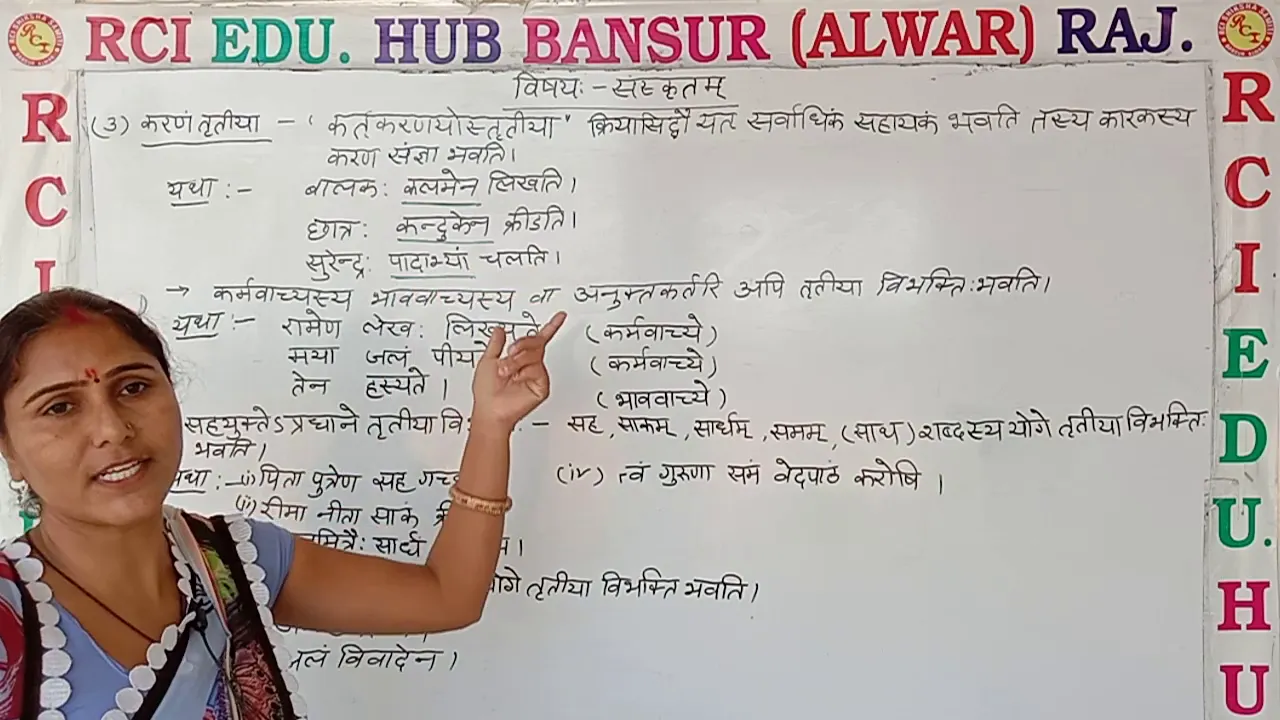 RCI EDU. HUB BANSUR (ALWAR) RAJ.
विषयः - संस्कृतम्
(3) करणं तृतीया - 'कर्तृकरणयोस्तृतीया" क्रियासिद्धौ यत् सर्वाधिकं सहायकं भवति तस्य कारकस्य
करण संज्ञा भवति।
यथा :- बालकः कलमेन लिखति।
छात्रः कन्दुकेन क्रीडति।
सुरेन्द्रः पादाभ्यां चलति।
→ कर्मवाच्यस्य भाववाच्यस्य वा अनुक्तकर्तरि अपि तृतीया विभक्तिः भवति।
यथा :- रामेण लेखः लिख्यते (कर्मवाच्ये)
मया जलं (कर्मवाच्ये)
तेन हस्यते। (भाववाच्ये)
सहयुक्तेऽप्रधाने तृतीया - सह, साकम्, सार्धम्, समम्, (साथ) शब्दस्य योगे तृतीया विभक्तिः
भवति।
(i) पिता पुत्रेण सह (iv) त्वं गुरुणा समं वेदपाठं करोषि।
(ii) रीमा नीता साकं
सार्धं
तृतीया विभक्ति भवति।
विवादेन।
R
C
I
E
D
U.
H
U
R
C
I